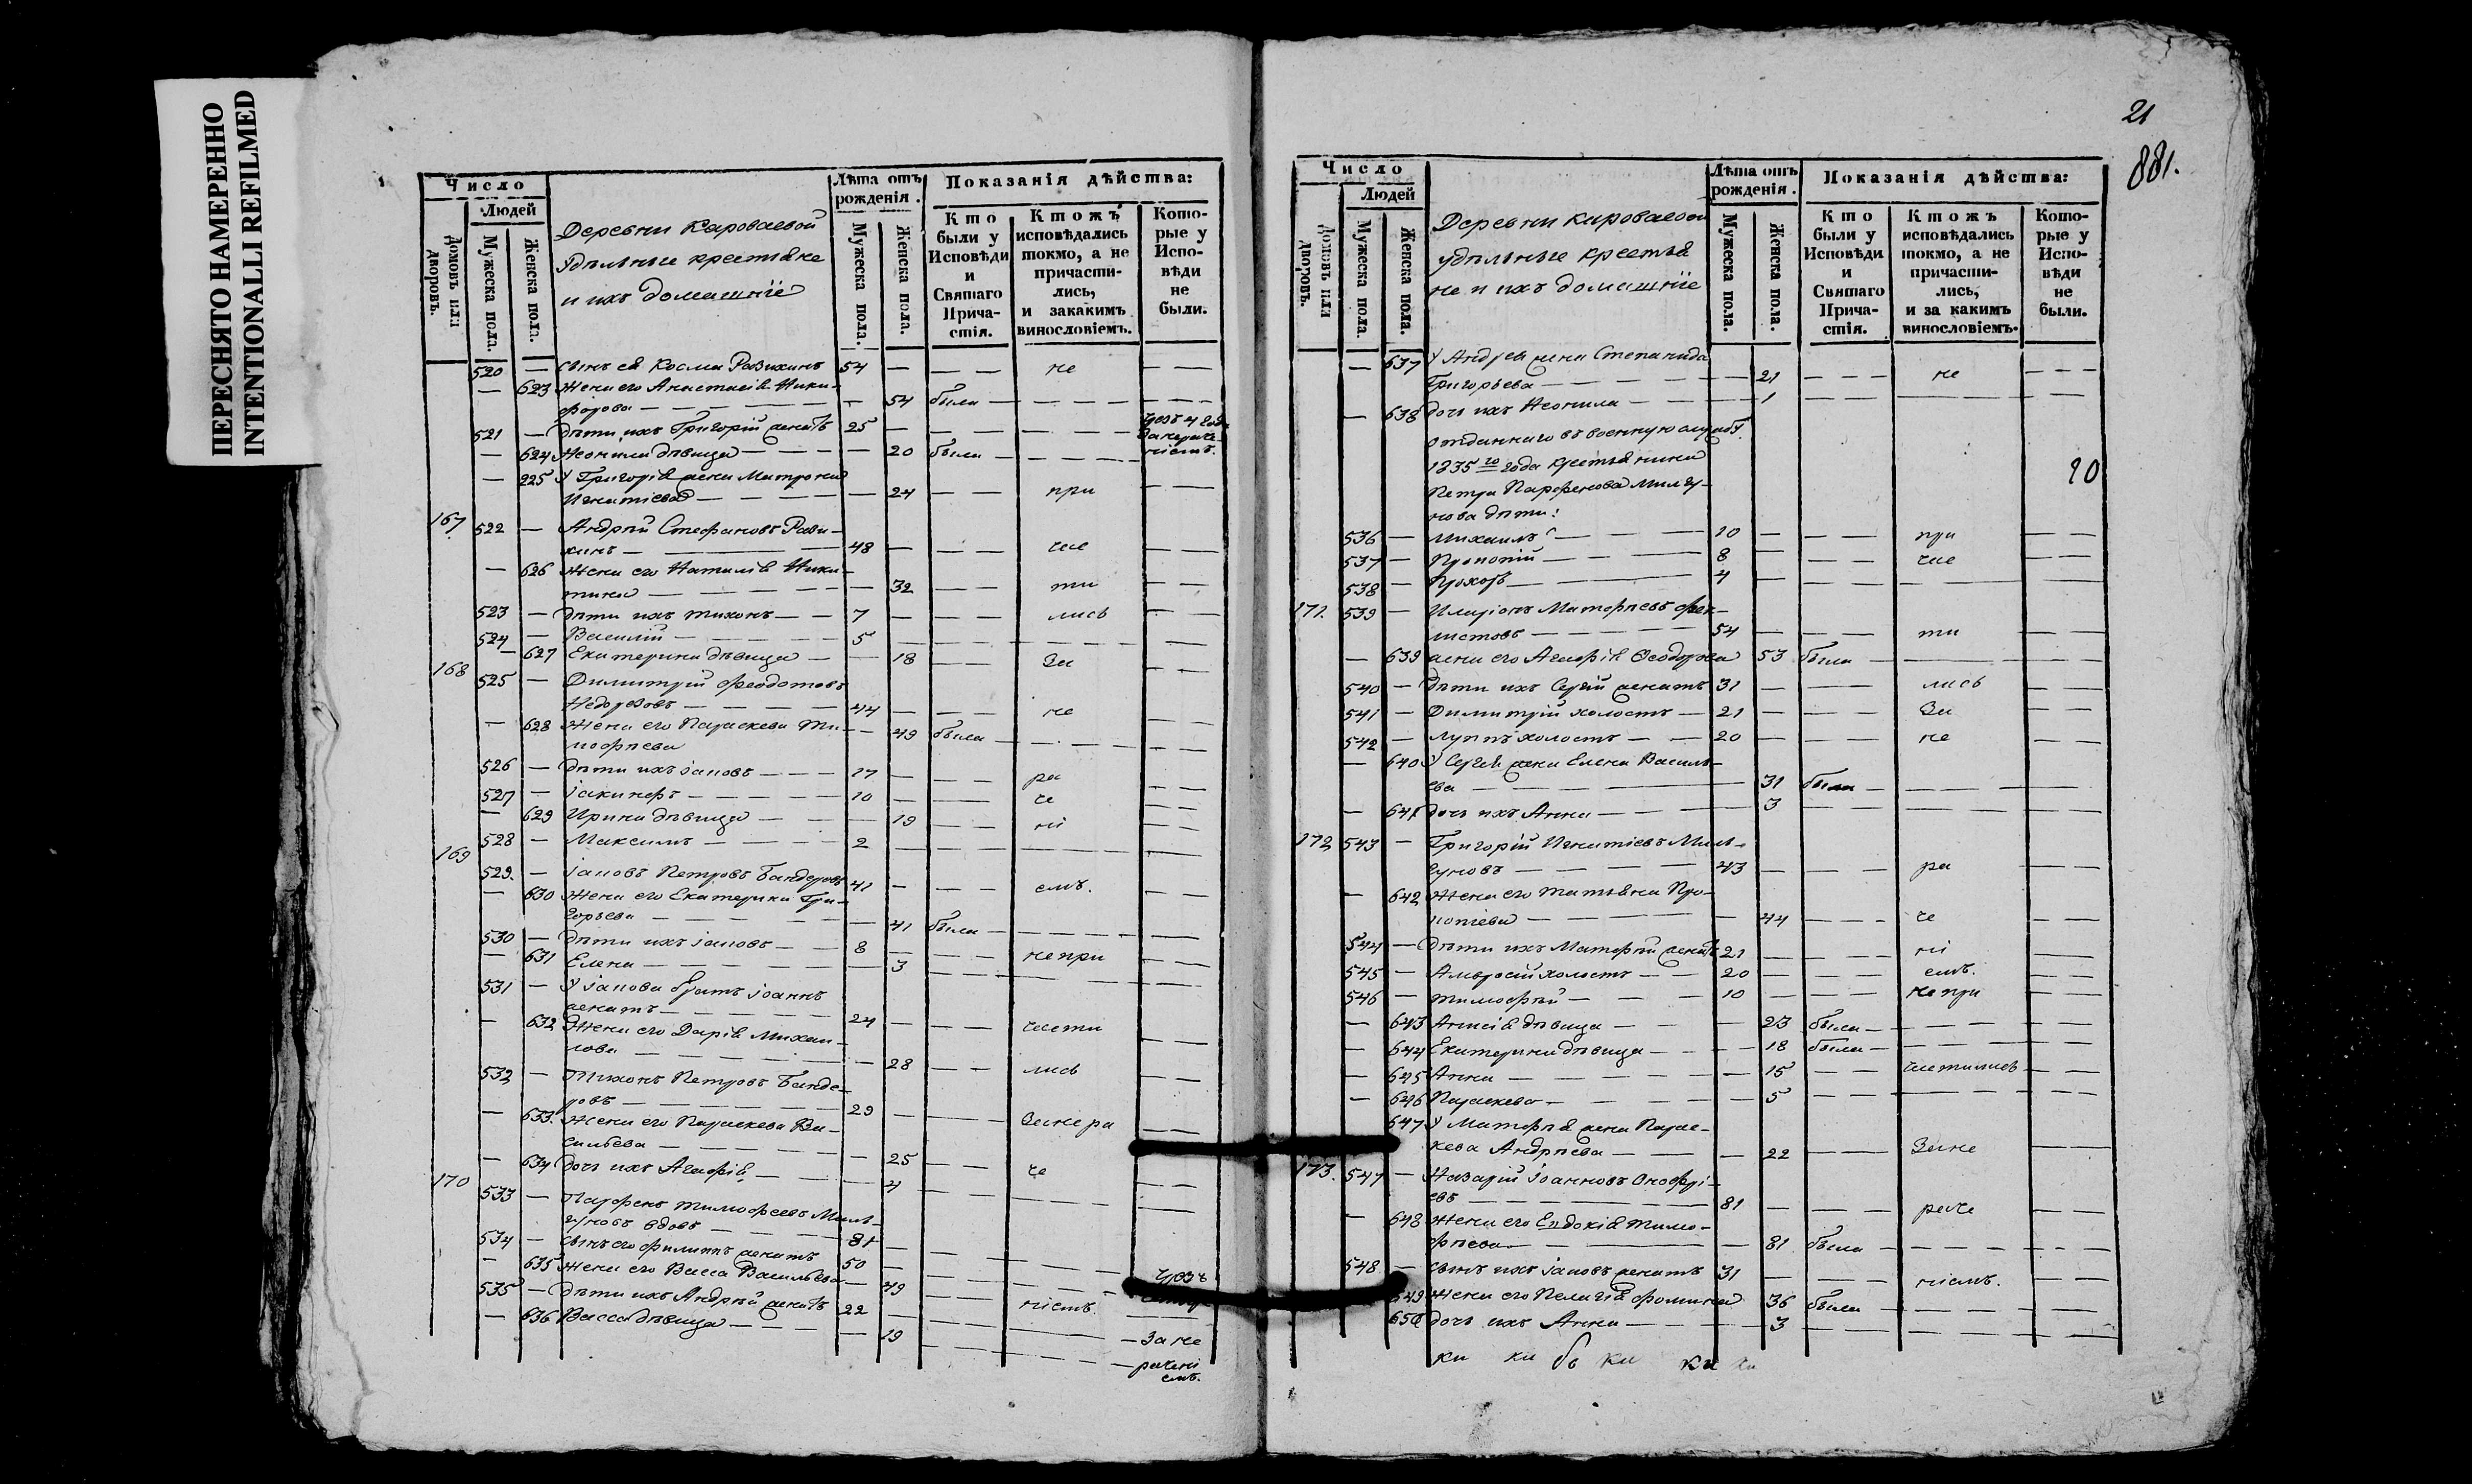 ПЕРЕСНЯТО НАМЕРЕННО
INTENTIONALLI REFILMED
Число
Людей
Домовъ или дворовъ.
Мужеска пола.
Женска пола.
Деревни Кароваевой
Удѣльные крестьяне
и ихъ домашніе
Лѣта отъ рожденія.
Мужеска пола.
Женска пола.
Показанія дѣйства:
Кто были у Исповѣди и Святаго Прича-стія.
Ктожъ исповѣдались токмо, а не причасти-лись, и закакимъ винословіемъ.
Кото-рые у Испо-вѣди не были.
520 — сынъ ея Косма 54 — — — не — —
— 623 Жена его Анастасія Ники-
форова — — — — 54 была — — — —
521 — дѣти ихъ Григорій женатъ 25 — — — —
— 624 Неонила дѣвица — — — 20 была — — —
— 225 У Григорія жена Матрона
Игнатіева — — — 24 — — при — —
167 522 — Андрей Стефановъ
— — — 48 — — — час — —
— 626 Жена его Наталія Ники-
тина — — — — 32 — — ти — —
523 — дѣти ихъ Тихонъ — — 7 — — — лись — —
524 — Василій — — — — 5 — — — —
— 627 Екатерина дѣвица — — 18 — — За — —
168 525 — Димитрій Феодотовъ
— — — 44 — — — не — —
— 628 Жена его Параскева Ти-
мофѣева — 49 была — — — — —
526 — дѣти ихъ Іаковъ — — — 17 — — — ра — —
527 — Іакинфъ — — — — 10 — — — че — —
— 629 Ирина дѣвица — — — 19 — — ні — —
528 — Максимъ — — — — 2 — — — —
169 529. — Іаковъ Петровъ Бандеровъ 41 — — — емъ. — —
— 630 Жена его Екатерина Гри-
горьева — — — — 41 была — — — —
530 — дѣти ихъ Іаковъ — — 8 — — — не при — —
— 631 Елена — — — — 3 — — — —
531 — У Іакова братъ Іоаннъ
женатъ — — — — 24 — — — части — —
— 632 Жена его Дарія Михаи-
лова — — — — 28 — — лись — —
532 — Тихонъ Петровъ Банде-
ровъ — — — — 29 — — — За не ра — —
— 633. Жена его Параскева Ва-
сильева — — — — 25 — — че — —
— 634 дочь ихъ Агафія — — — 4 — — — —
170 533 — Парфенъ Тимофеевъ Миль-
гуновъ вдовъ — — 81 — — — —
534 — сынъ его Филиппъ женатъ 50 — — — —
— 635 Жена его Васса Васильева — 49 — — — —
535 — дѣти ихъ Андрей женатъ 22 — — — ніемъ.
— 636 Васса дѣвица — — — — 19 — — — — За не
рачені
емъ.
21
881.
Число
Людей
Домовъ или дворовъ.
Мужеска пола
Женска пола.
Деревни Кароваевой
удѣльные крестья
не и ихъ домашніе
Лѣта отъ рожденія.
Мужеска пола.
Женска пола.
Показанія дѣйства:
Кто были у Исповѣди и Святаго Прича-стія.
Ктожъ исповѣдались токмо, а не причасти-лись, и за какимъ винословіемъ.
Кото-рые у Испо-вѣди не были.
— 637 У Андрея жена Степанида
Григорьева — — — — 21 — — — не — — —
— 638 дочь ихъ Неонила — — — 1 — — — —
отданнаго въ военную службу
1835го года крестьянина 20
Петра Парфенова Мильгу-
нова дѣти:
536 — Михаилъ — — — 10 — — — при — —
537 — Прокопій — — — 8 — — — час — —
538 — Прохоръ — — — 4 — — — —
171. 539 — Иларіонъ Матфѣевъ
— — — 54 — — — ти — —
— 639 жена его Агафія Феодорова 53 была — — —
540 — дѣти ихъ Сергій женатъ 31 — — лись — —
541 — Димитрій холостъ — 21 — — — За — —
542 — Луппъ холостъ — — 20 — — — не — —
— 640 У Сергея жена Елена Василь-
ева — — — 31 была — — —
— 641 дочь ихъ Анна — — — 3 — — — —
172 543 — Григорій Игнатіевъ Миль-
гуновъ — — — 43 — — — ра — —
— 642 Жена его Татьяна Про-
копіева — — — — 44 — — — че — —
544 — дѣти ихъ Матфей женатъ 21 — — — ні — —
545 — Амвросій холостъ — — 20 — — — емъ. — —
546 — Тимофѣй — — — 10 — — — не при — —
— 643 Анисія дѣвица — — — 23 была — — — —
— 644 Екатерина дѣвица — — — 18 была — — — —
— 645 Анна — — — — — 15 — — частились — —
— 646 Параскева — — — — 5 — — — —
647 У Матфѣя жена Парас-
кева Андрѣева — — — 22 — — За не — —
173. 547 — Назарій Іоанновъ Онофрі-
евъ — — — — 81 — — — раче — —
— 648 Жена его Евдокія Тимо-
фѣева — — — — 81 была — — — — —
548 — сынъ ихъ Іаковъ женатъ 31 — — — ніемъ. — —
649 Жена его Пелагія Фомина 36 была — — — —
650 дочь ихъ Анна — — — — 3 — — — —